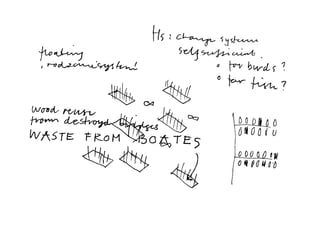 Hs: change system
selfsufficient.
floating
• for birds?
• for fish?
wood reuse
from destroyd bridges
WASTE FROM BOATES